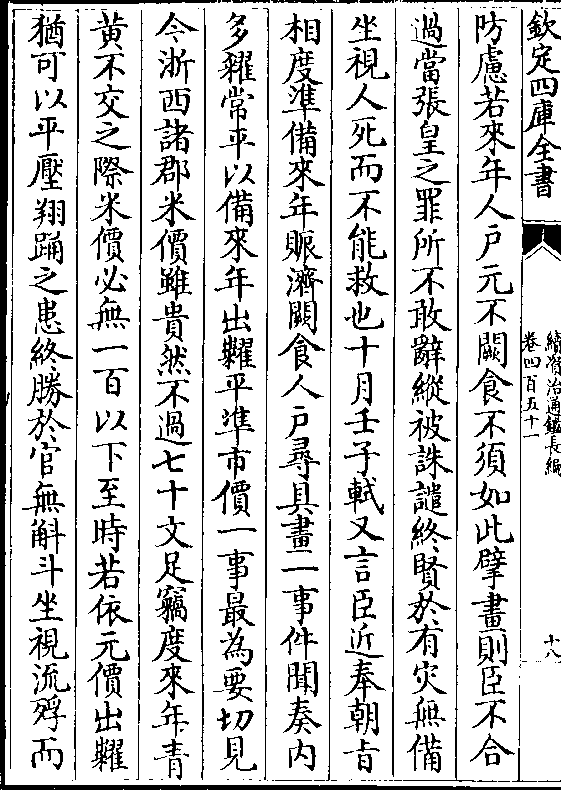 欽定四庫全書
續資治通鑑長編
卷四百五十一
十八
防慮若來年人戶元不闕食不須如此擘畫則臣不合
過當張皇之罪所不敢辭縱被誅譴終賢於有災無備
坐視人死而不能救也十月壬子軾又言臣近奉朝旨
相度準備來年賑濟闕食人戶尋具畫二事件聞奏内
多糴常平以備來年出糶平準市價一事最為要切見
今浙西諸郡米價雖貴然不過七十文足竊度來年青
黄不交之際米價必無一百以下至時若依元價出糶
猶可以平壓翔踴之患終勝於官無斛斗坐視流殍而